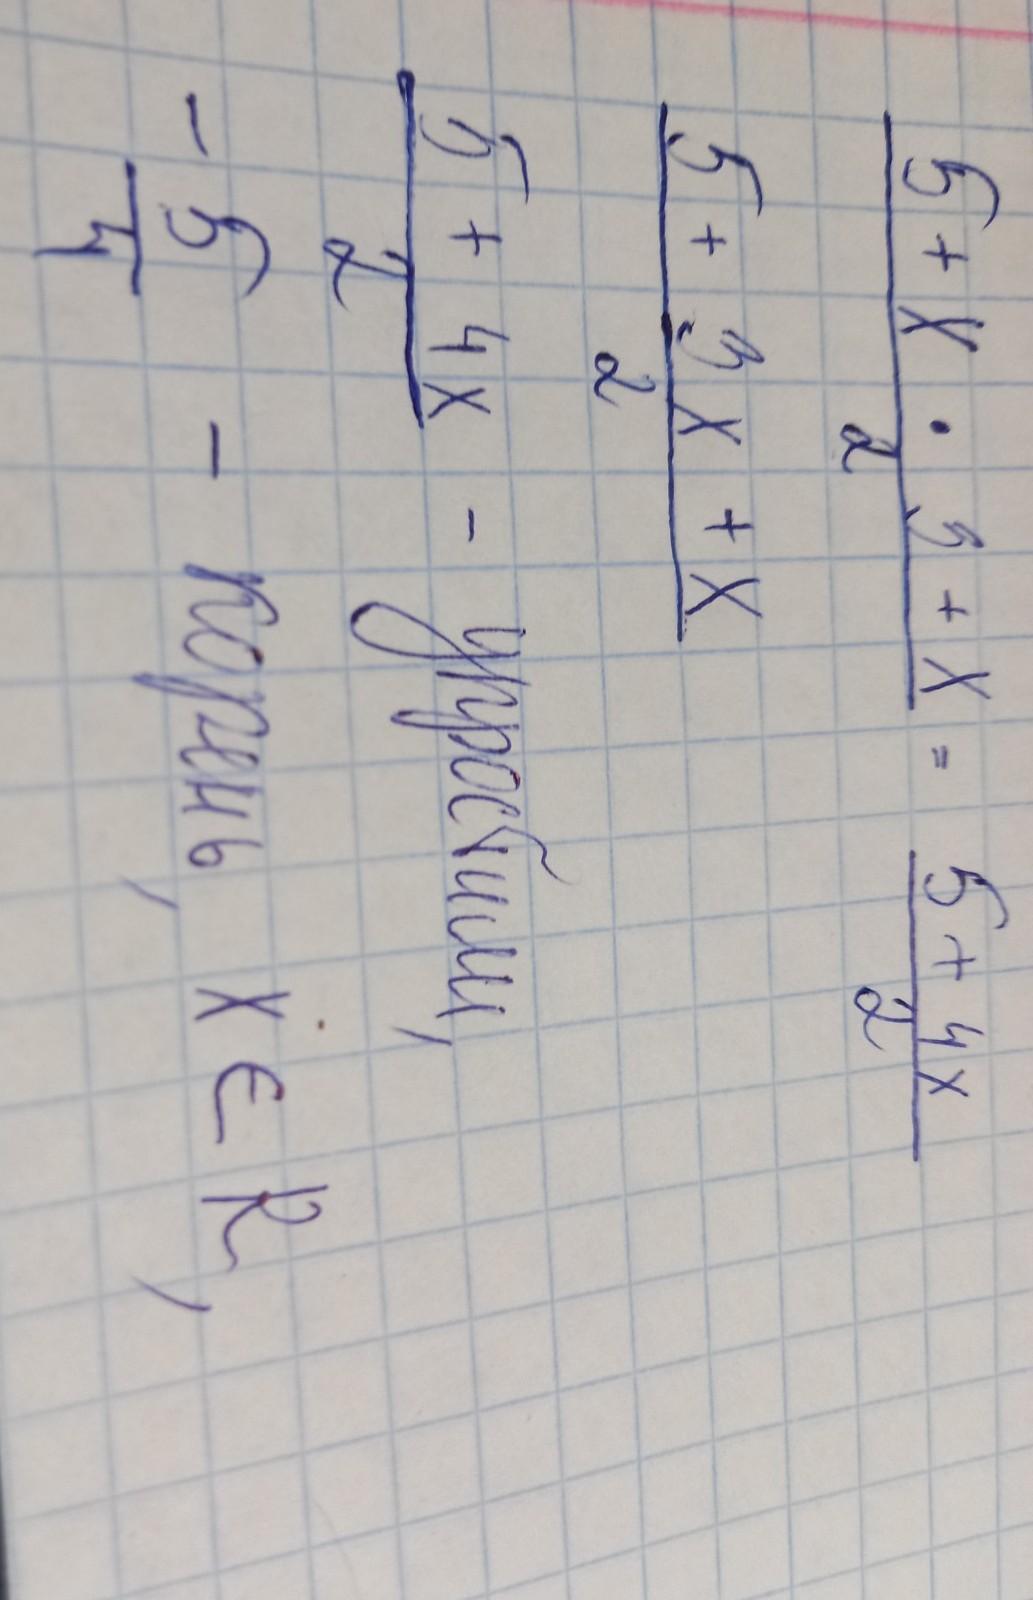 5 + x · 3 + x / 2 = 5 + 4x / 2
5 + 3x + x / 2
5 + 4x / 2 - упростим,
- 5/4 - корень, x ∈ R,